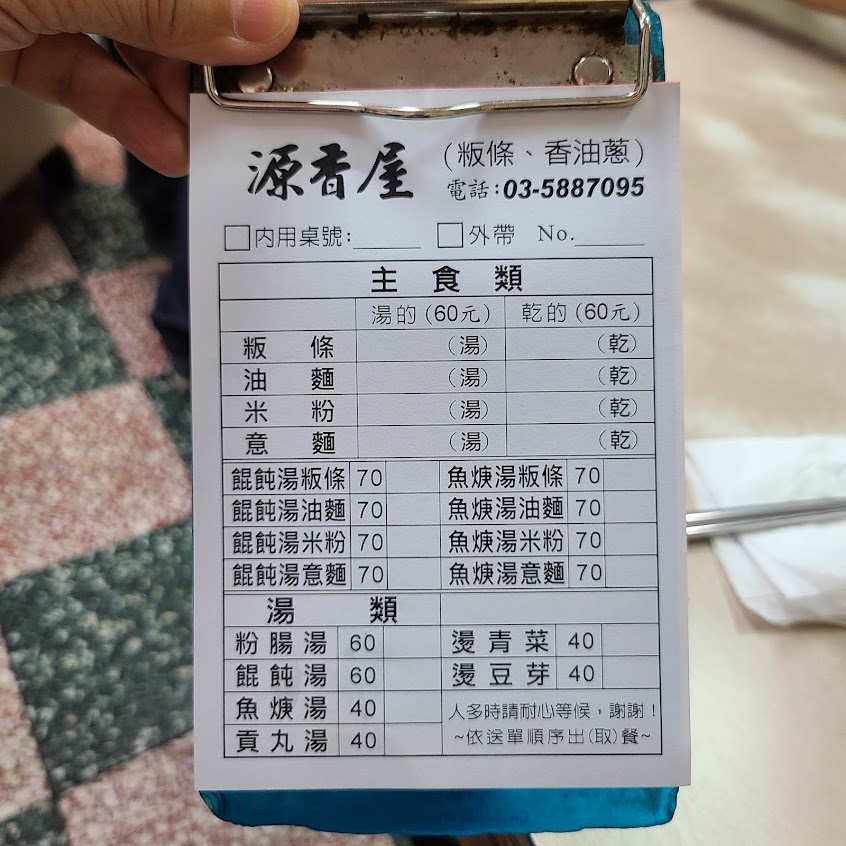 源香屋 (粄條、香油蔥)
電話:03-5887095
□內用桌號:______ □外帶 No.______
主食類
湯的(60元) 乾的(60元)
粄條 (湯) (乾)
油麵 (湯) (乾)
米粉 (湯) (乾)
意麵 (湯) (乾)
餛飩湯粄條 70 魚焿湯粄條 70
餛飩湯油麵 70 魚焿湯油麵 70
餛飩湯米粉 70 魚焿湯米粉 70
餛飩湯意麵 70 魚焿湯意麵 70
湯類
粉腸湯 60 燙青菜 40
餛飩湯 60 燙豆芽 40
魚焿湯 40
貢丸湯 40
人多時請耐心等候,謝謝!
~依送單順序出(取)餐~